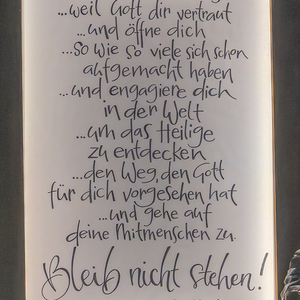 ...weil Gott dir vertraut
...und öffne dich
...so wie so viele sich schon
aufgemacht haben
...und engagiere dich
in der Welt
...um das Heilige
zu entdecken
...den Weg, den Gott
für dich vorgesehen hat
...und gehe auf
deine Mitmenschen zu.
Bleib nicht stehen!